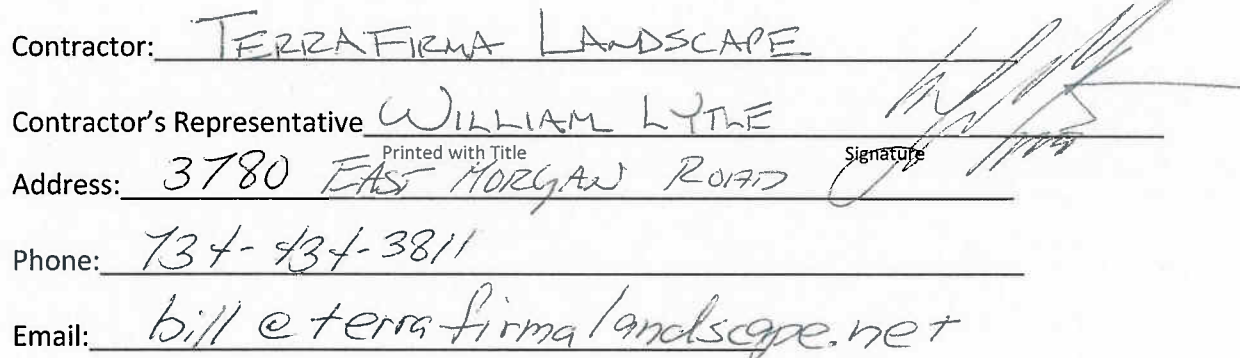 Contractor: TERRAFIRMA LANDSCAPE
Contractor's Representative WILLIAM LYTLE
Printed with Title Signature
Address: 3780 EAST MORGAN ROAD
Phone: 734-434-3811
Email: bill@terrafirmalandscape.net